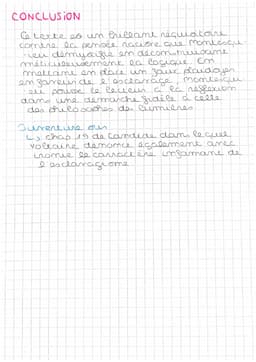 CONCLUSION
Ce texte es un brillant réquisitoire
contre la pensée raciste que Montesqui
-eu démystifie en décontruisant
méticuleusement la logique. En
mettant en place un faux plaidoyer
en faveur de l'esclavage, Montesqui
eu pousse le lecteur à la réflexion
dans une démarche fidèle à celle
des philosophes des Lumières.
Ouverture sur
↳ chap 19 de Candide dans lequel
Voltaire dénonce également avec
ironie le carractère infamant de
l'esclavagisme